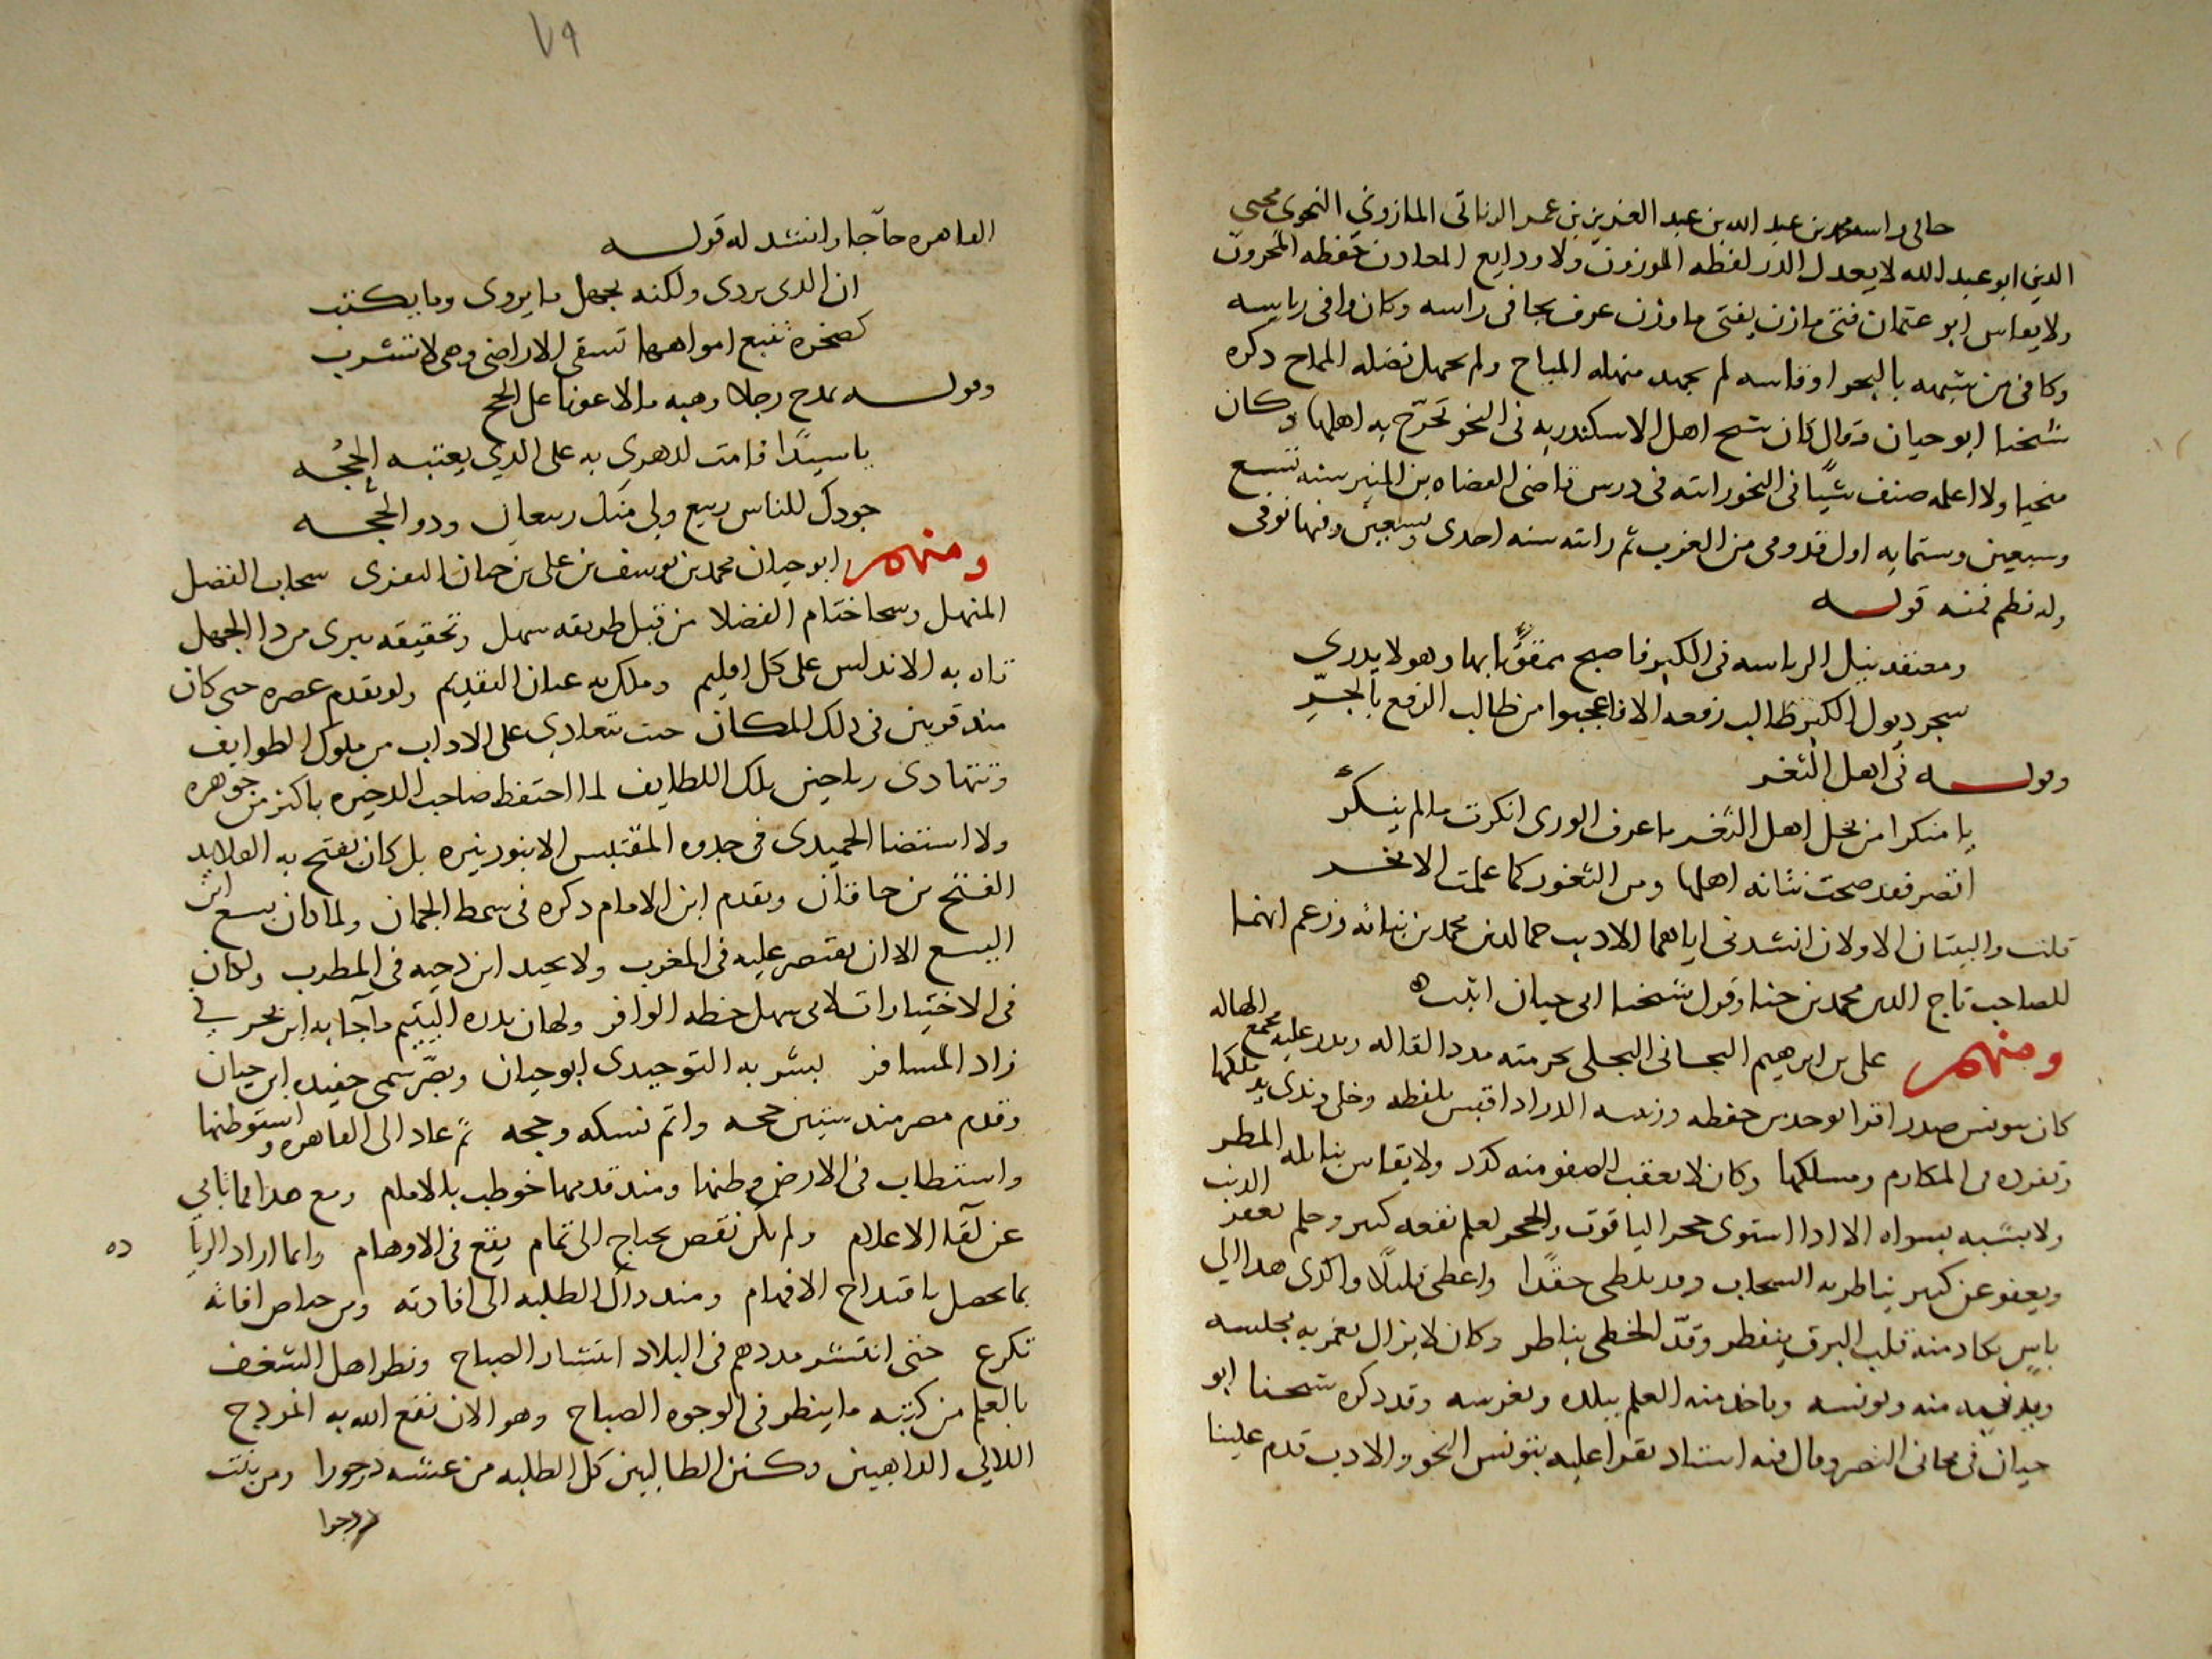 حافى راسه محمد بن عبد الله بن عبد العزيز بن عمر الزناتى المازونى النحوى محيى
الدين ابو عبد الله لا يعدل الدر لفظه الموزون ولا ودايع المعادن حفظه المخزون
ولا يقاس ابو عثمان فتى مازن يفتى ماوزن عرف بحافى راسه وكان وافى رياسه
وكافى من يشبهه بالبحر او قاسه لم يجهد منهله المباح ولم يحمل فضله المماح ذكره
شخنا ابو حيان وقال كان شيخ اهل الاسكندريه فى النحو تخرّج به اهلها وكان
منحيا ولا اعلمه صنف شيًا فى النحو رايته فى درس قاضى القضاه بن المنير سنه تسع
وسبعين وستمايه اول قدومى من الغرب ثم رايته سنه احدى وتسعين وفيها توفى
وله نظم فمنه قولـــه
ومعتقد نيل الرياسه فى الكبر فاصبح ممقوتا بها وهو لا يدرى
يجر ذيول الكبر طالب رفعه الا فاعجبوا من طالب الرفع بالجرّ
وقولـــه فى اهل الثغر
يا منكرا من بخل اهل الثغر ما عرف الورى انكرت ما لم ينكر
اقصر فقد صحت نتانه اهلها ومن الثغور كما علمت الابخر
قلت والبيتان الاولان انشدنى اياهما الاديب جمال الدين محمد بن نباته وزعم انهما
للصاحب تاج الدين محمد بن حنا وقول شيخنا ابى حيان اثبت
ومنهم على بن ابرهيم البجانى البجلى بحر منه مدد القاله وبدر عليه مجمع الهاله
كان بتونس صدر اقرا لوحدبن حفظه وزينه الدر اذا اقتبس بلفظه وخلى وندى يد يملكها
وتفرد فى المكارم ومسلكها وكان لا يعقب الصفو منه كدر ولا يقاس بنايله المطر
ولا يشبه بسواه الا اذا استوى حجر الياقوت والحجر لعلم نفعه كبير وحلم يغفر الذنب
ويعفو عن كبير يناظر به السحاب وقد تلظى حقدا واعطى قليلًا واكدى هذا الى
باس يكاد منه قلب البرق ينفطر وقدّ الخطى يناطر وكان لا يزال يعمر به مجلسه
ويدنيه منه ويونسه وياخذ منه العلم ببلده ويغرسه وقد ذكره شيخنا ابو
حيان فى مجانى النصر وقال فيه استاد يقرا عليه بتونس النحو والادب قدم علينا
٧٩
القاهره حاّجا وانشد له قولـــه
ان الذى يروى ولكنه يجهل ما يروى وما يكتب
كصخرة تنبع امواهها تسقى الاراضى وهى لا تشرب
وقولـــه يمدح رجلا وهبه مالا عونا على الحج
يا سيدًا قامت لدهرى به على الذى يعتبه الحُجّـــه
جودك للناس ربيع ولى منك ربيعان وذو الحجّـــه
ومنهم ابو حيان محمد بن يوسف بن على بن حيان النفزى سحاب الفضل
المنهل وسحا ختام الفضلا من قبل طريقه سهل وتحقيقه يبرى من دا الجهل
تاه به الاندلس على كل اقليم وملك به عنان التقديم ولو تقدم عصره حتى كان
منذ قرنين فى ذلك المكان حيث تتعادى على الاداب من ملوك الطوايف
وتتهادى رياحين تلك اللطايف لما احتفظ صاحب الذخيره باكثر من جوهره
ولا استضا الحميدى فى جذوه المقتبس الا بنور نيره بل كان يفتح به القلايد
الفتح بن خاقان وتقدم ابن الامام ذكره فى سمط الجمان ولما كان يسع ابن
اليسع الا ان يقتصر عليه فى المغرب ولا يحيد ابن دحيه فى المطرب ولكان
فى الاختيارات لا يهمل حظه الوافر ولهان بدره اليتيم ما جا به ابن بحر فى
زاد المسافر لبشر به التوحيدى ابو حيان وبصّر سمى حفيده ابن حيان
وقدم مصر منذ سنين حجه واتم نسكه وحجه ثم عاد الى القاهره واستوطنها
واستطاب فى الارض وطنها ومنذ قدمها خوطب بالامام ومع هذا فما تابى
عن لقآ الاعلام ولم يكن نقص يحتاج الى تمام يقع فى الاوهام وانما اراد الزيا ده
بما يحصل باقتداح الافهام ومنذ دال الطلبه الى افادته ومن حياض افاته
تكرع حتى انتشر مددهم فى البلاد انتشار الصباح ونظر اهل الشغف
بالعلم من كتبه ما ينظر فى الوجوه الصباح وهو الان نفع الله به انموذج
الليالى الذاهبين وكنز الطالبين كل الطلبه من عشه درجورا ومن بيت
درجوا